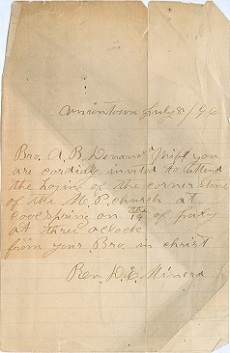 Uniontown July 8/96
Bro. A. B. Wife you
are cordialy invited to attend
the of the corner stone
of the M. P. church at
coolspring on 14th of July
at three oclock
from your Bro. in christ
Rev. D. E. Minerd